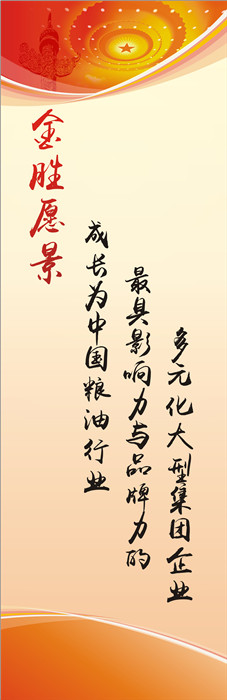 金胜愿景
成长为中国粮油行业
最具影响力与品牌力的
多元化大型集团企业